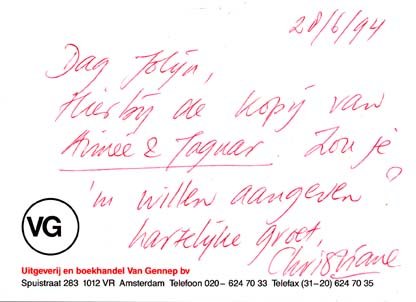 28/6/94
Dag Jolijn,
Hierbij de kopij van
Aimee & Jaguar. Zou je
'm willen aangeven?
hartelijke groet,
Christiane
VG
Uitgeverij en boekhandel Van Gennep bv
Spuistraat 283 1012 VR Amsterdam Telefoon 020– 624 70 33 Telefax (31–20) 624 70 35